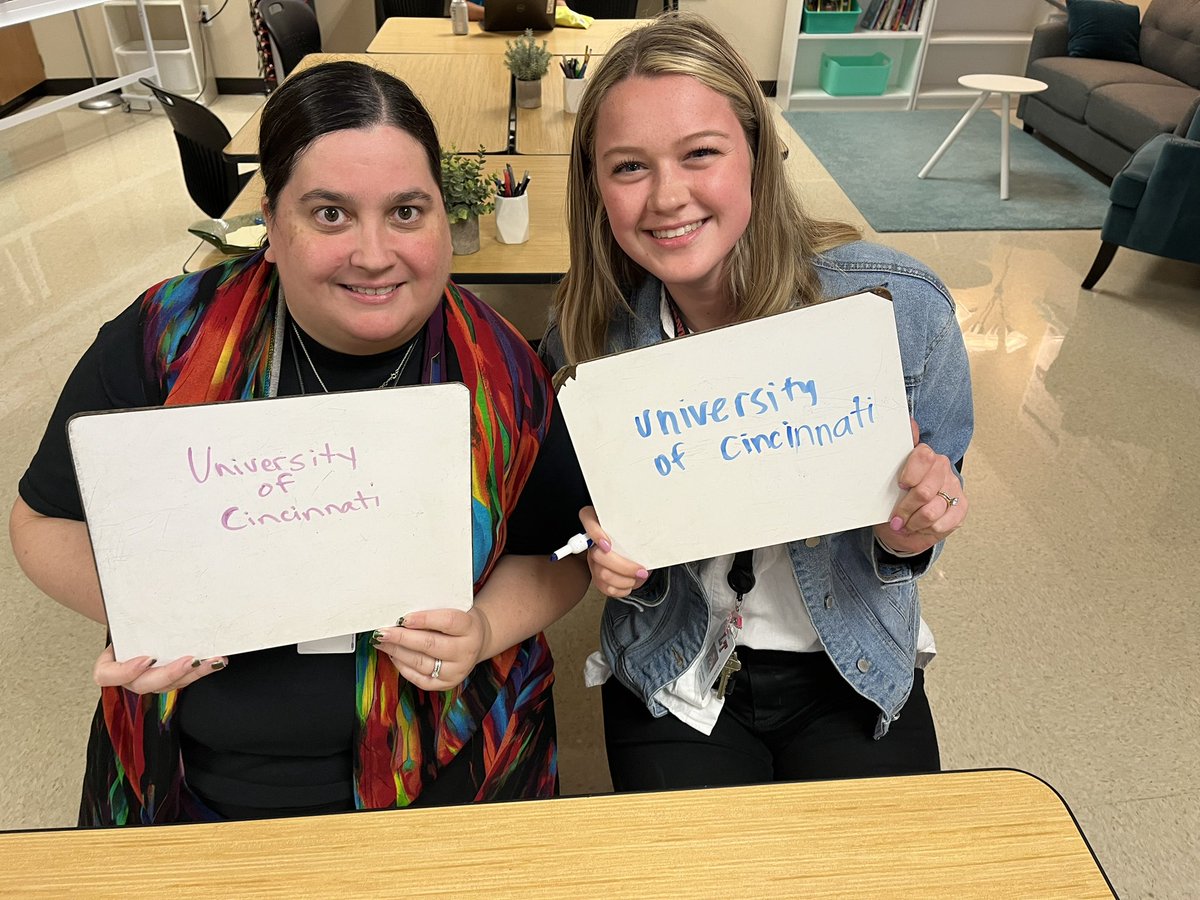 University
of
Cincinnati
University
of Cincinnati